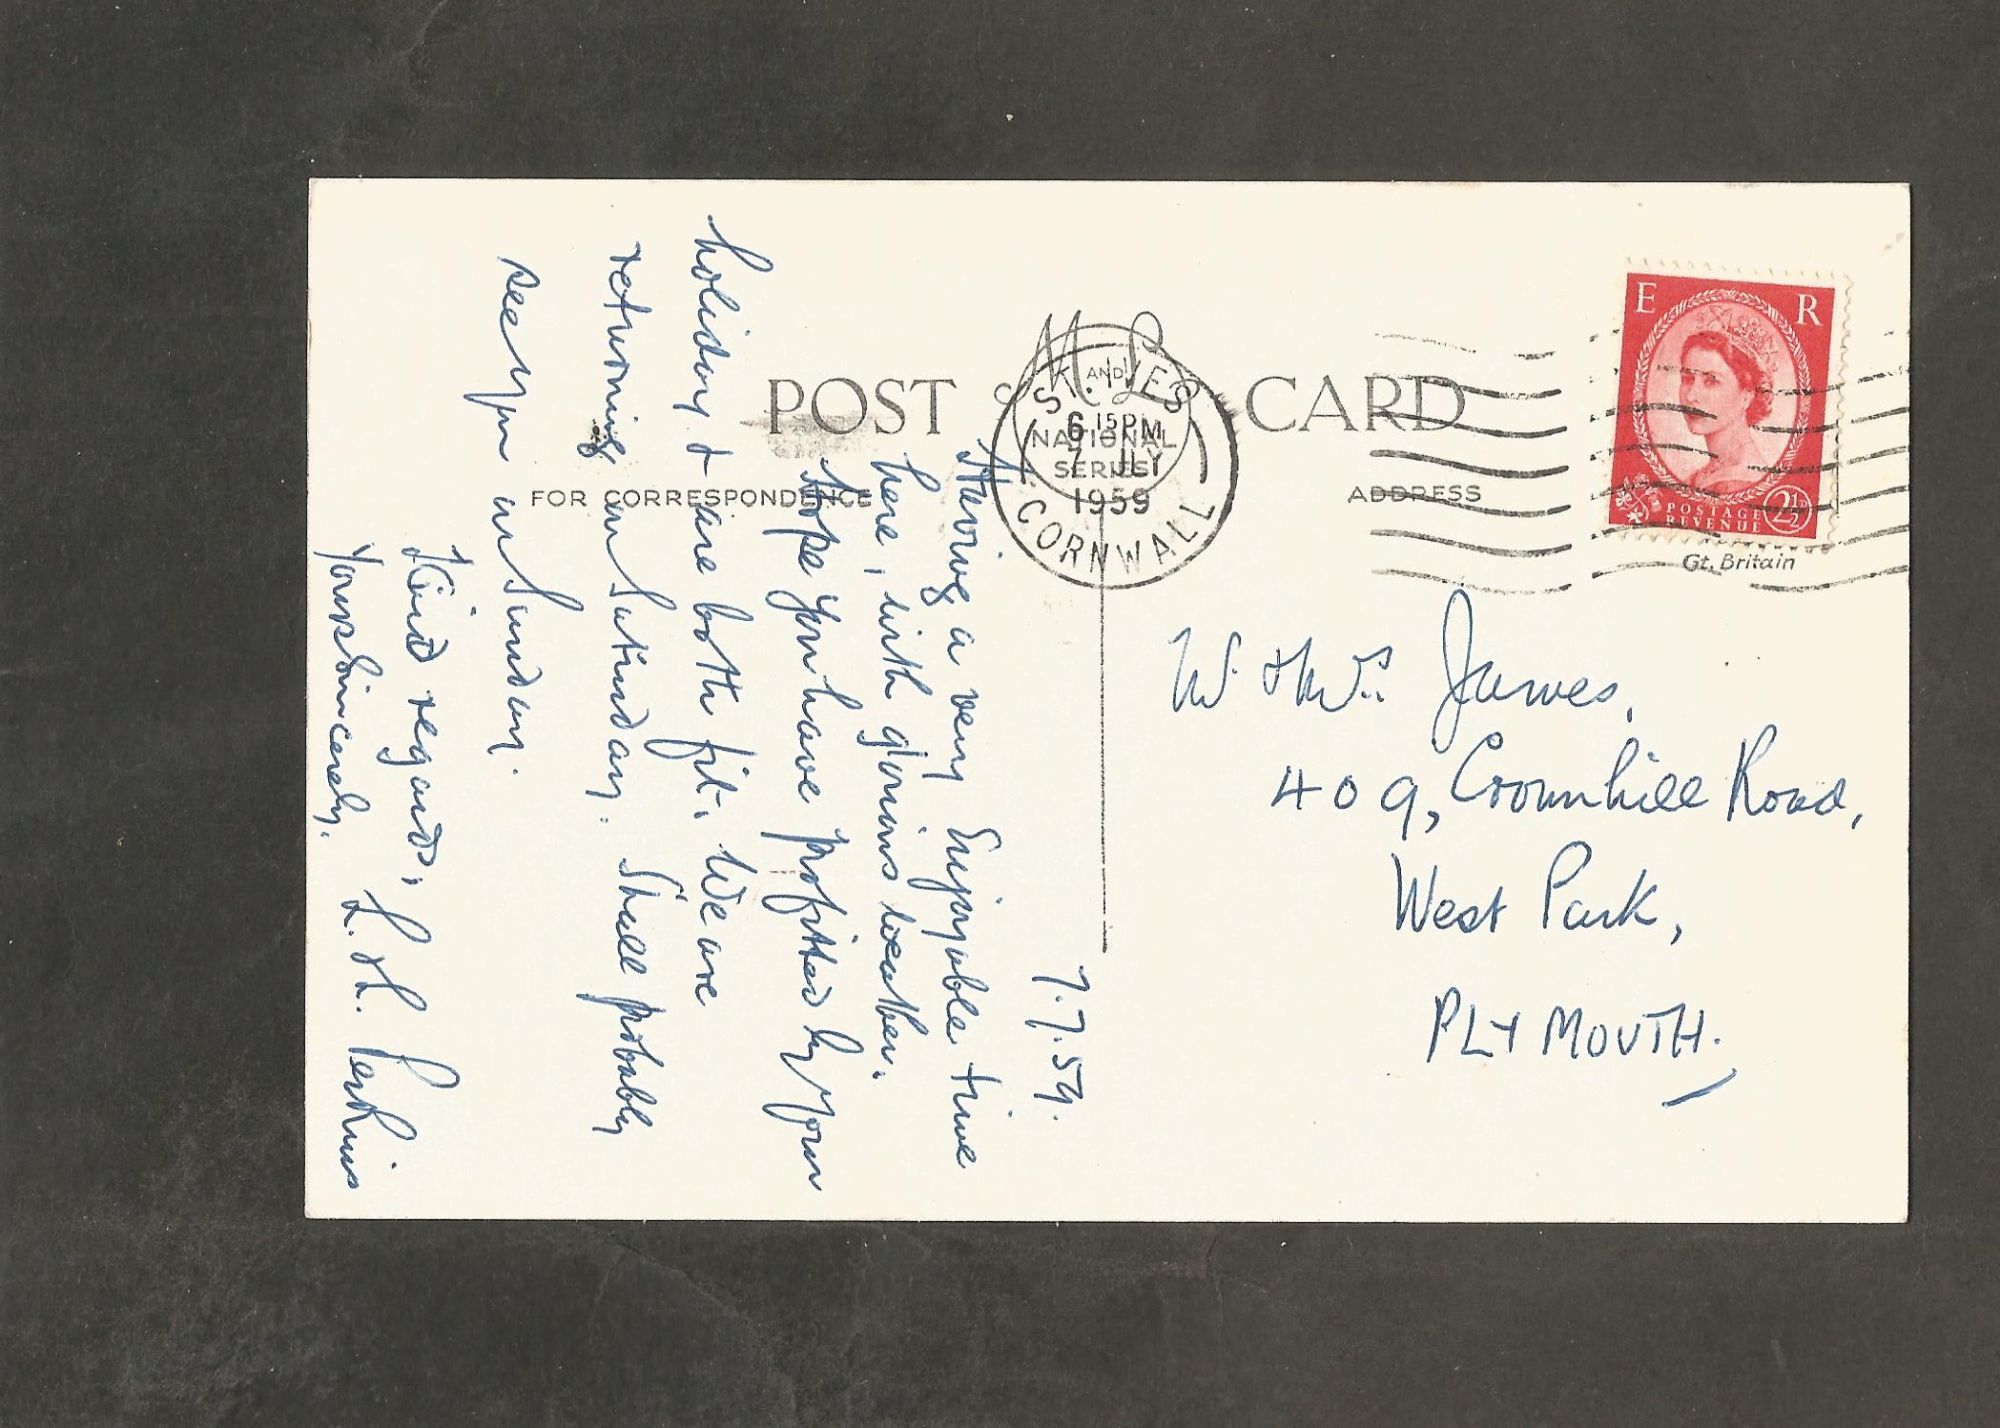 POST CARD
M and L
NATIONAL
SERIES
FOR CORRESPONDENCE
ADDRESS
ST. IVES
6 15PM
7 JLY
1959
CORNWALL
E R
POSTAGE
REVENUE
2½
Gt. Britain
7.7.59.
Having a very Enjoyable time
here, with glorious weather.
Hope you have profitted by your
holiday & are both fit. We are
returning on Saturday. Shall probably
see you on Sunday.
Kind regards,
Yours Sincerely. L. H. Perkins
M. & Mrs. James,
409, Crownhill Road,
West Park,
PLYMOUTH.